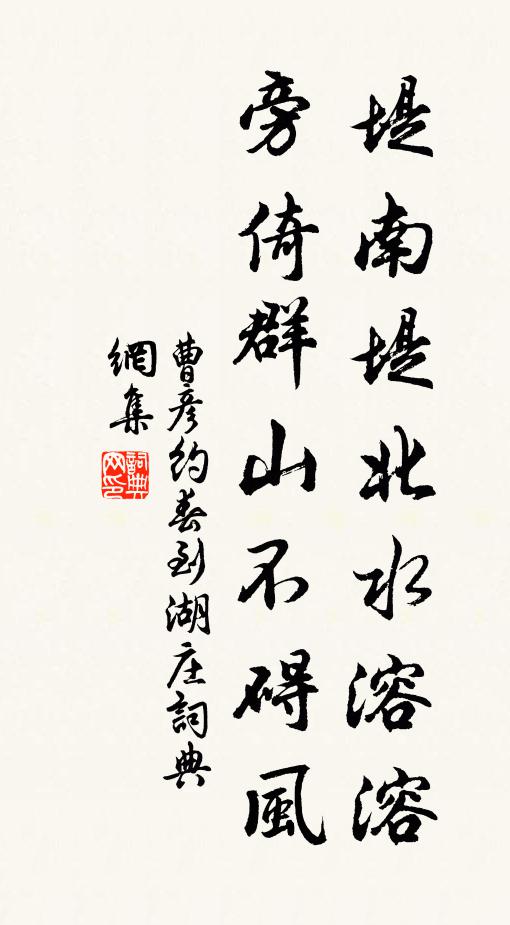 堤南堤北水溶溶
旁倚群山不碍風
曹彦約春到湖庄詞典
網集
詞典网印